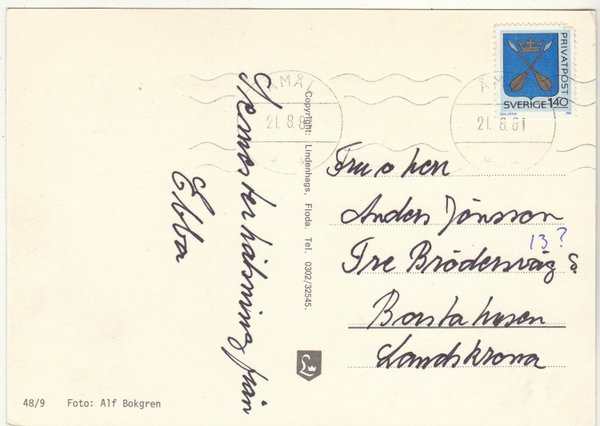 PRIVATPOST
SVERIGE 140
DALARNA
ÅMÅL
21.8.81
ÅMÅL
21.8.81
Semesterhälsning från
Ebba
Copyright: Lindenhags, Floda. Tel. 0302/32545.
Fru o herr
Anders Jönsson
13?
Tre Brödersväg 8
Borstahusen
Landskrona
L
48/9 Foto: Alf Bokgren